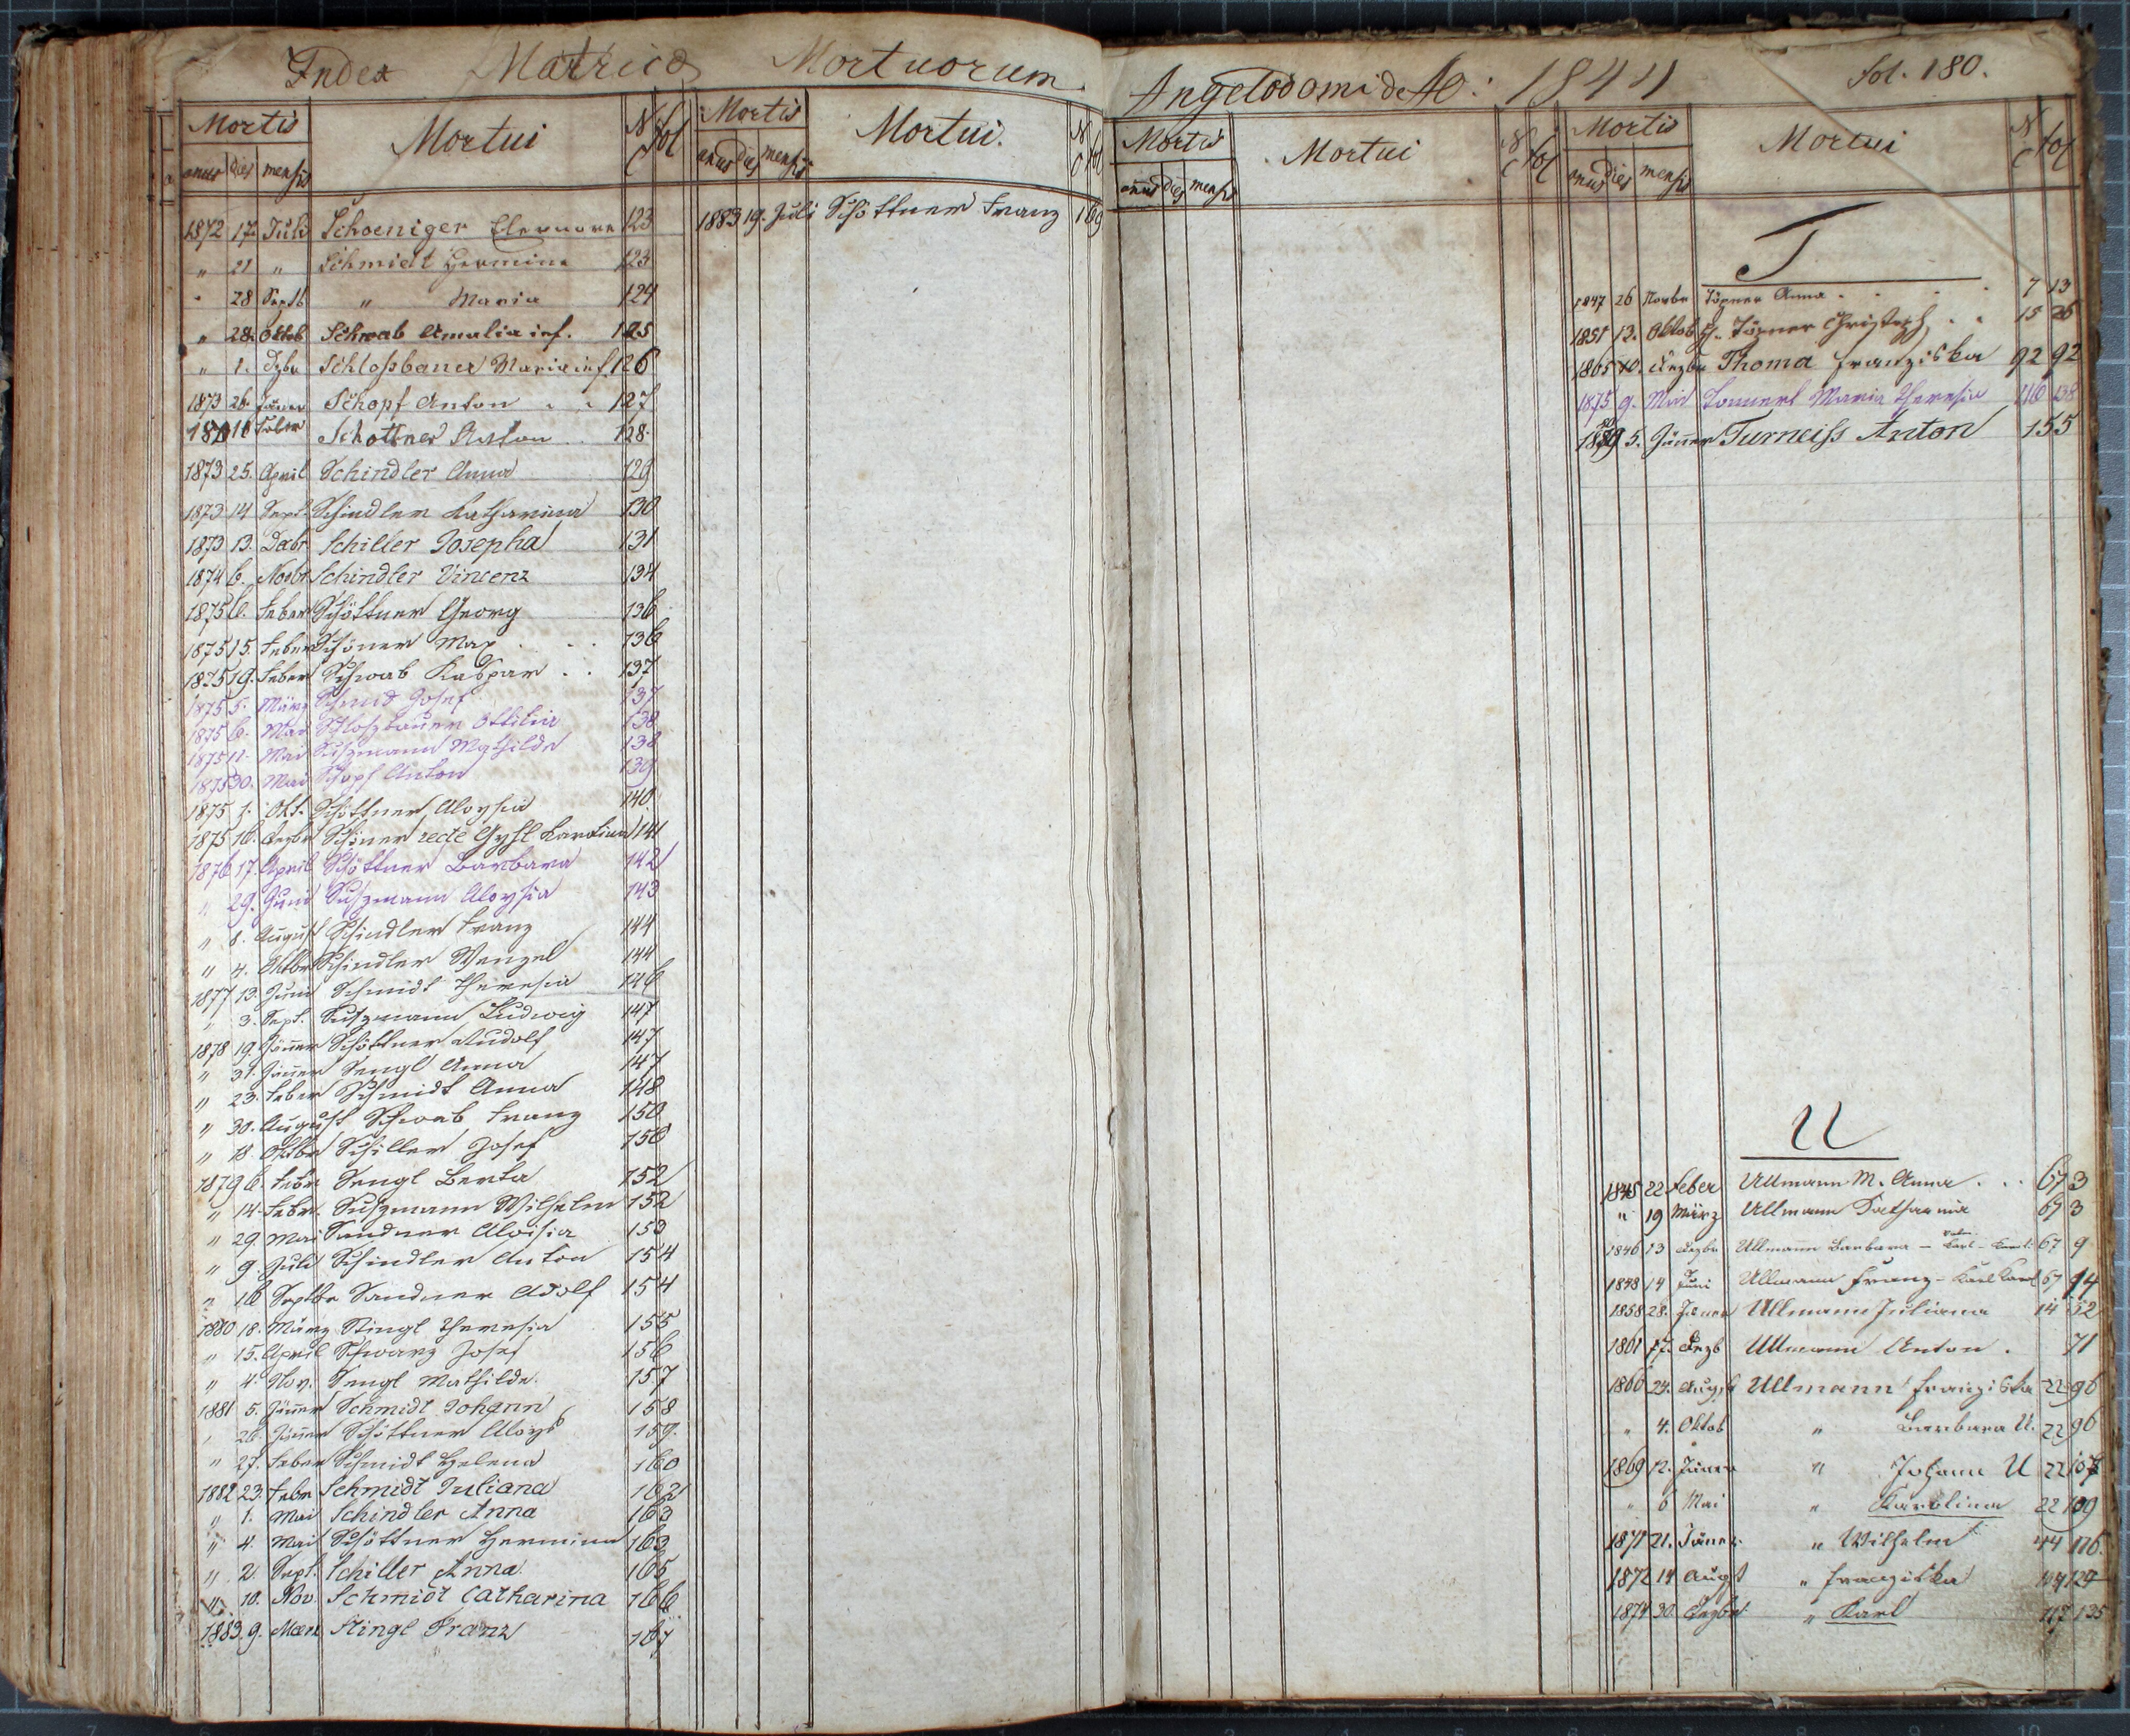 Index Matricæ Mortuorum
Mortis Mortui N C fol Mortis Mortui. N C fol
anus dies mensis anus dies mensis
1872 17. Juli Schoeniger Eleonora 123
" 21 " Schmidt Hermine 123
" 28 Septb " Maria 124
" 28. Oktob Schwab Amalia inf. 125
" 1. Dezbr Schloßbauer Maria inf. 126
1873 26. Jäner Schopf Anton . . 127
Schottner Anton . . 128.
1873 25. April Schindler Anna 129
1873 14 Sept. Schindler Katharina 130
1873 13. Decbr Schiller Josepha 131
1874 6. Novbr Schindler Vincenz 134
1875 6. Feber Schöttner Georg 136
1875 15. Feber Schöner Max . . . 136
1875 19. Feber Schwab Kaspar . . 137
1875 5. März Schmid Josef 137
1875 6. Mai Schloszbauer Ottilia 138
1875 11. Mai Suszmann Mathilde 138
1875 30. Mai Schopf Anton 139
1875 1. Okt. Schöttner Aloysia 140
1875 16. Dezbr Schöner recte Gyhl Karolina 141
1876 17. April Schöttner Barbara 142
" 29. Juni Suszmann Aloysia 143
" 8. August Schindler Franz 144
" 4. Oktbr Schindler Wenzel 144
1877 13. Juni Schmidt Theresia 146
" 3. Sept. Suszmann Ludwig 147
1878 19. Jänner Schöttner Rudolf 147
" 31. Jänner Sengl Anna 147
" 23. Feber Schmidt Anna 148
" 30. August Schwab Franz 150
" 18. Oktbr Schiller Josef 150
1879 6. Febr Sengl Berta 152
" 14. Febr. Suszmann Wilhelm 152
" 29 Mai Sandner Aloisia 153
" 9. Juli Schindler Anton 154
" 16 Septbr Sandner Adolf 154
1880 18. März Stingl Theresia 155
" 15. April Schwarz Josef 156
" 4. Nov. Sengl Mathilde. 157
1881 5. Jänner Schmidt Johann 158
" 26. Jänner Schöttner Aloys 159.
" 27. Feber Schmidt Helena 160
1882 23. Febr Schmidt Juliana 162
" 1. Mai Schindler Anna 163
" 4. Mai Schöttner Hermine 163
" 2. Sept. Schiller Anna. 165
" 10. Nov. Schmidt Catharina 166
1883 9. Stingl Franz 167
1883 19. Juli Schöttner Franz 169
Angelodomi de Ao: 1844 fol. 180.
Mortis Mortui N C fol Mortis Mortui N C fol
anus dies mensis anus dies mensis
T
1847 26 Novbr Töpner Anna . . . 7 13
1851 12. Oktob Töpner Christoph . . 15 26
1865 Dezbr Thoma Franziska 92 92
1875 9. Mai Maria Theresia 138
5. Jänner Turneiss Anton 155
U
1845 22 Feber Ullmann M. Anna . . . 67 3
" 19 März Ullmann Katharina 67 3
1846 13 Dezbr Ullmann Barbara 67 9
1848 14 Juni Ullmann Franz 67 14
1858 28. Jäner Ullmann Juliana 14 52
1861 17. Dezb Ullmann Anton . 71
1866 24. Augst Ullmann Franziska 22 96
" 4. Oktob " Barbara U. 22 96
1869 12. Jäner " Johann U 22 107
" 6 Mai " Karolina 22 109
1871 21. Jäner. " Wilhelm 44 116.
1872 14 Augst " Franziska 124
1874 30. Dezbr " Karl 117 135